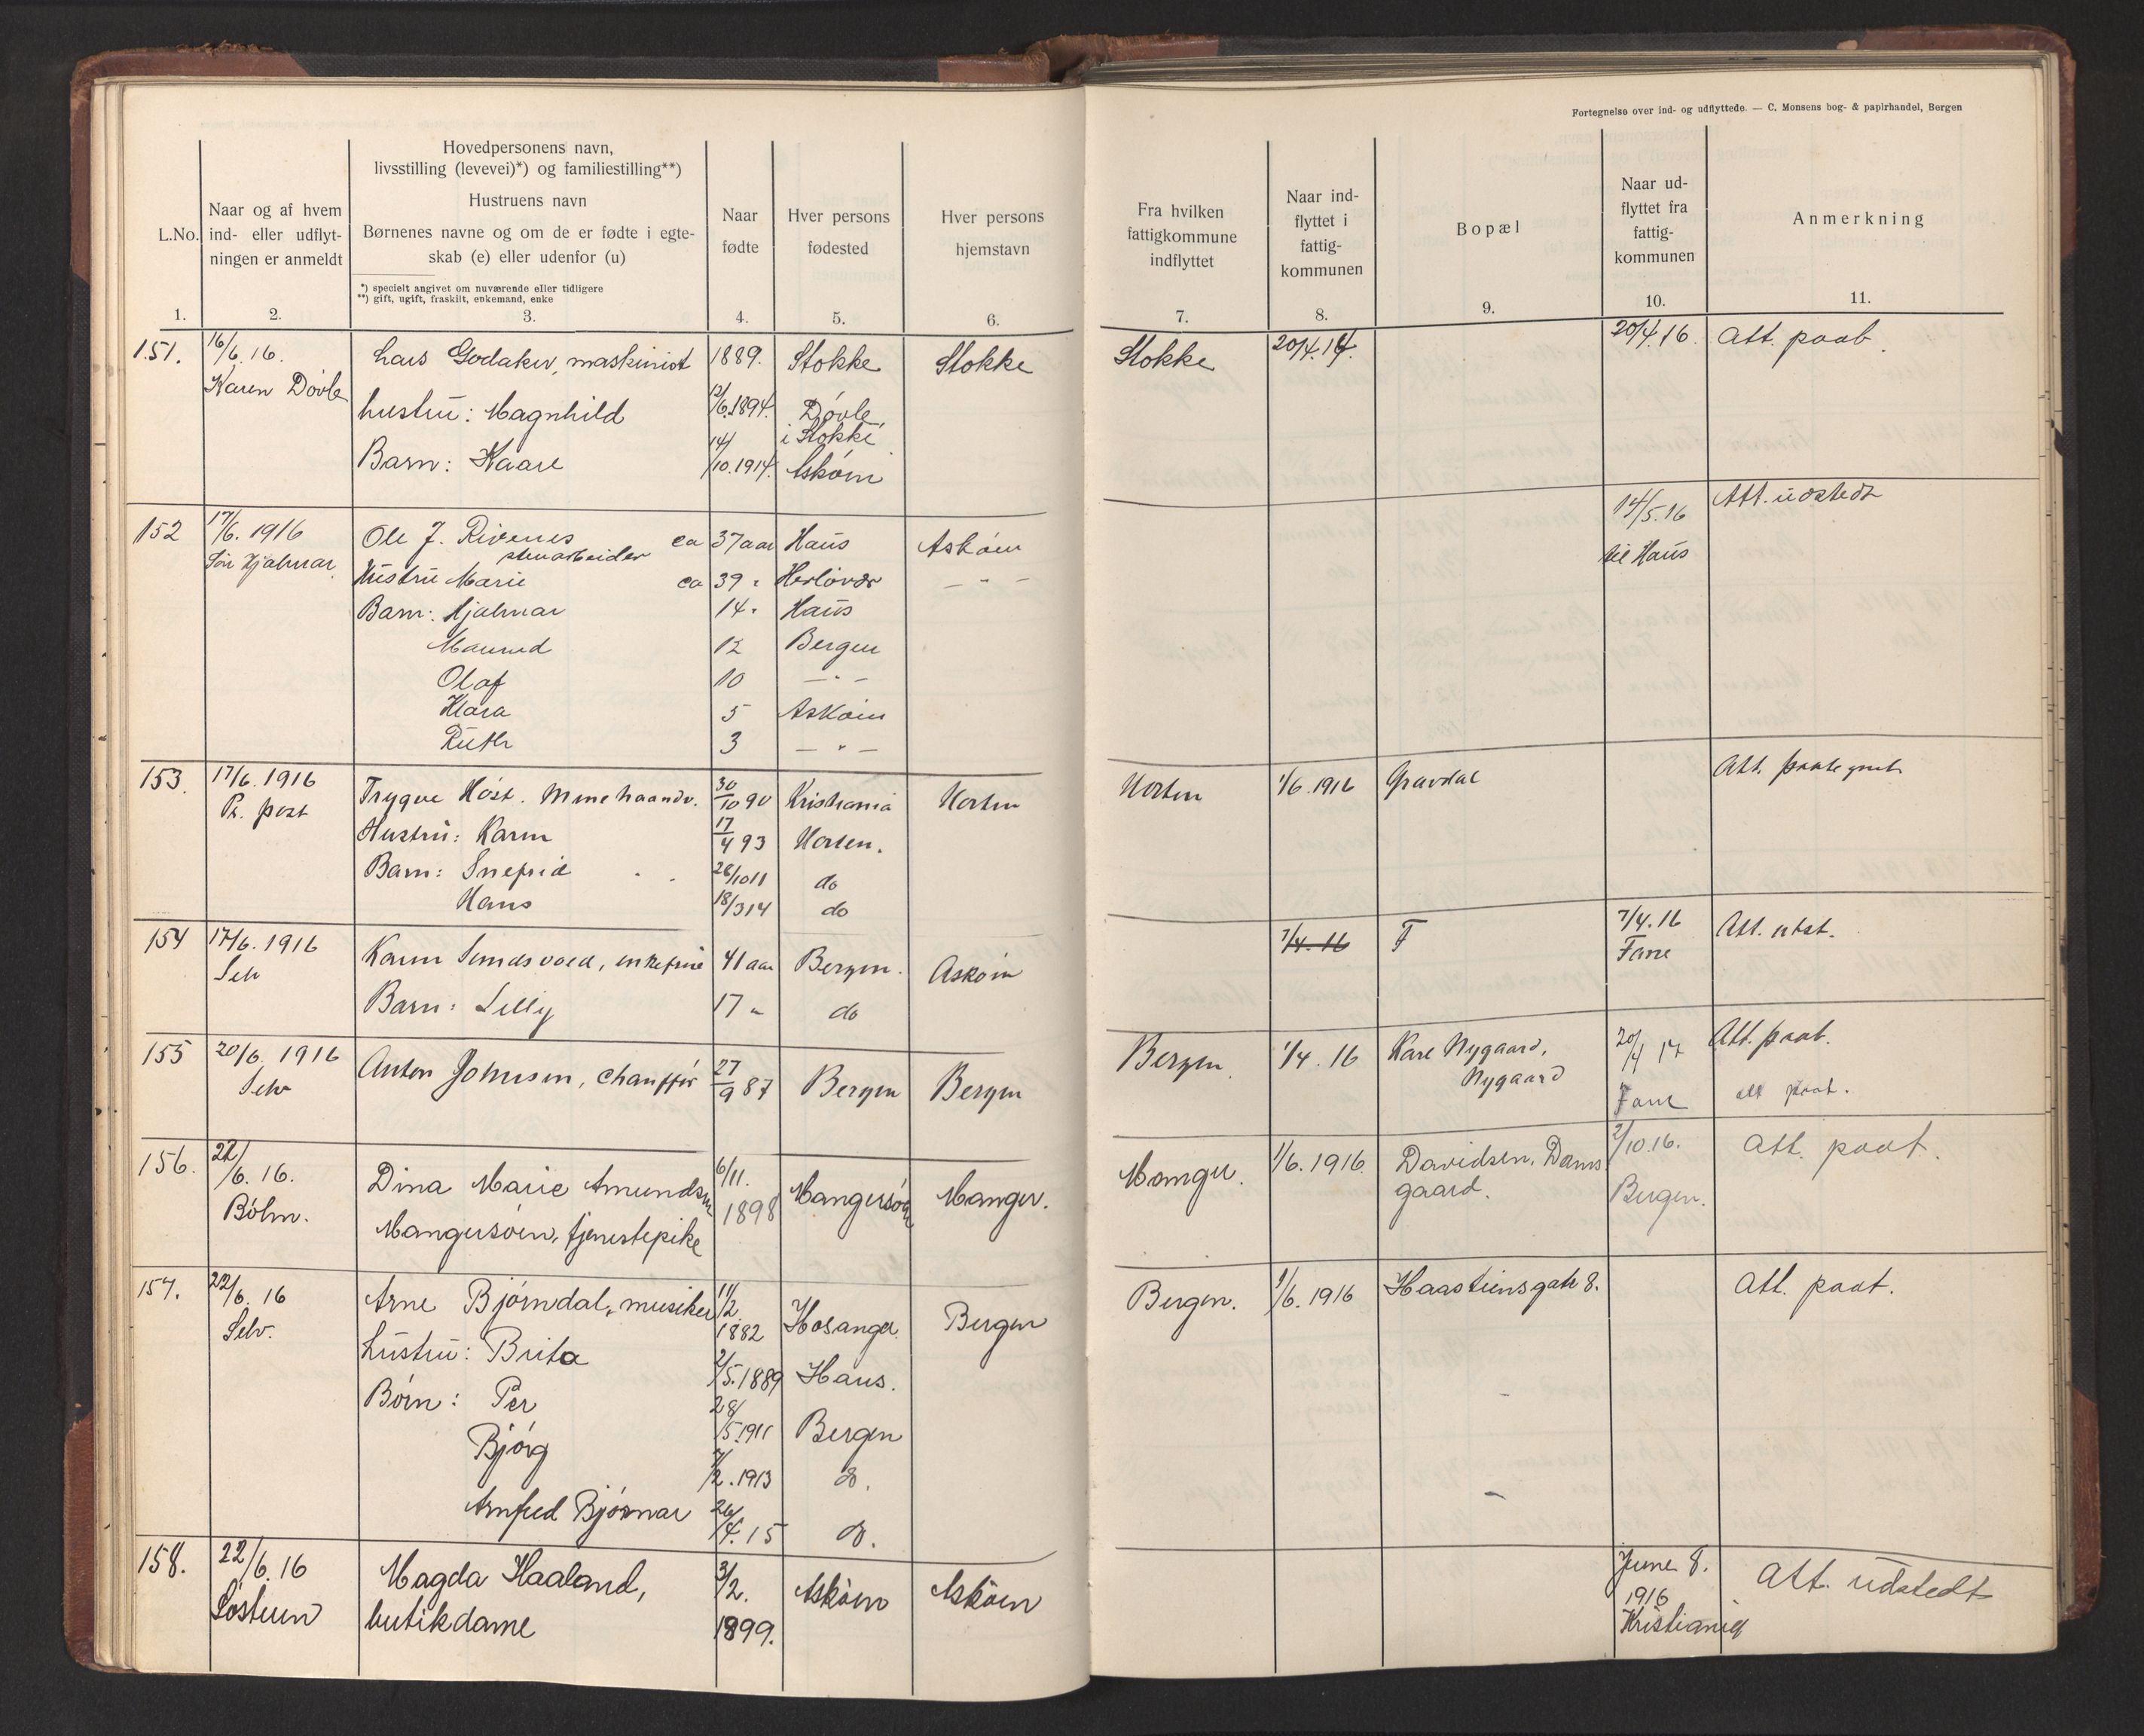 Fortegnelse over ind- og udflyttede. — C. Monsens bog- & papirhandel, Bergen
L.No.
1.
Naar og af hvem
ind- eller udflyt-
ningen er anmeldt
2.
Hovedpersonens navn,
livsstilling (levevei)*) og familiestilling**)
Hustruens navn
Børnenes navne og om de er fødte i egte-
skab (e) eller udenfor (u)
*) specielt angivet om nuværende eller tidligere
**) gift, ugift, fraskilt, enkemand, enke
3.
Naar
fødte
4.
Hver persons
fødested
5.
Hver persons
hjemstavn
6.
Fra hvilken
fattigkommune
indflyttet
7.
Naar ind-
flyttet i
fattig-
kommunen
8.
Bopæl
9.
Naar ud-
flyttet fra
fattig-
kommunen
10.
Anmerkning
11.
151. 16/6. 16. Lars Godaker, maskinist 1889. Stokke Stokke Stokke 20/4.14. 20/4.16. Att. paab.
Karen Dövle
hustrü: Magnhild 12/6.1894. Dövle
i Stokke
Barn: Kaare 14/10.1914. Asköen
152 17/6. 1916 Ole J. Rivenes ca 37 aar Haüs Asköen 14/5.16 Att. üdstedt
Sön Hjalmar stenarbeider til Haüs
Hüstrü Marie ca 39 " Herlövær — " —
Barn: Hjalmar 14 " Haüs
12 Bergen
Olaf 10 — " —
Klara 5 Asköen
Rüth 3 — " —
153. 17/6. 1916 Trygve Höst. Minehaandv. 30/10 90 Kristiania Horten Horten 1/6. 1916 Gravdal Att. paategnet
Pr. post
Hustrü: Karen 17/4 93 Horten.
Barn: Snefrid 26/10 11 do
Hans 18/3 14 do
154 17/6. 1916 Karen Sundsvoed, enkefrue 41 aar Bergen. Asköen 7/4. 16 F 7/4. 16 Att. utst.
Selv Fane
Barn: Lilly 17 " do
155 20/6. 1916 Anton Johnsen, chaufför 27/9 87 Bergen Bergen Bergen. 1/4. 16 Kare Nygaard, 20/4 17 Att. paat.
Selv Nygaard Fane att paat.
156. 22/6. 16. Dina Marie Amundsen 6/11. 1898 Mangersöen Manger. Manger. 1/6. 1916. Davidsen, Dams 2/10.16. Att. paat.
Böhn. gaard. Bergen.
Mangersöen, tjenestepike
157. 22/6. 16 Arne Bjørndal, musiker 11/2. 1882 Hosanger Bergen Bergen. 1/6. 1916 Haasteinsgate 8. Att. paat.
Selv.
Lüstrü: Brita 2/5.1889 Haus.
Börn: Per 28/5.1911 Bergen
Björg 7/2.1913 do.
Arnfred Björnar 26/4.15 do.
158. 22/6. 16 Magda Haaland, 3/2. Asköen Asköen June 8. Att. üdstedt
Sösteren butikdame 1899. 1916
Kristiania